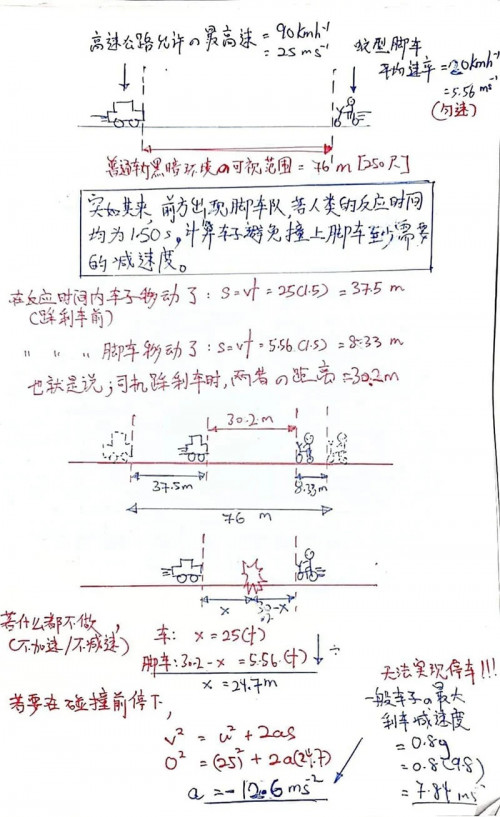 高速公路允许の最高速 = 90kmh⁻¹
= 25 ms⁻¹
蚊型脚车
平均速率 = 20kmh⁻¹
= 5.56 ms⁻¹
(匀速)
普通车灯黑暗环境の可视范围 = 76 m [250尺]
突如其来, 前方出现脚车队, 若人类的反应时间
均为1.50s, 计算车子避免撞上脚车至少需要
的减速度。
在反应时间内车子移动了: s=vt = 25(1.5) = 37.5 m
(踩刹车前)
" " " 脚车移动了: s=vt = 5.56(1.5) = 8.33 m
也就是说, 司机踩刹车时, 两者の距离 = 30.2m
30.2 m
37.5m
8.33m
76 m
x
30.2-x
若什么都不做,
(不加速/不减速)
车: x = 25(t)
脚车: 30.2 - x = 5.56(t)
÷
x = 24.7m
若要在碰撞前停下,
v² = u² + 2as
0² = (25)² + 2a(24.7)
a = -12.6 ms⁻²
无法实现停车!!!
一般车子の最大
刹车减速度
= 0.8g
= 0.8(9.8)
= 7.84 ms⁻²